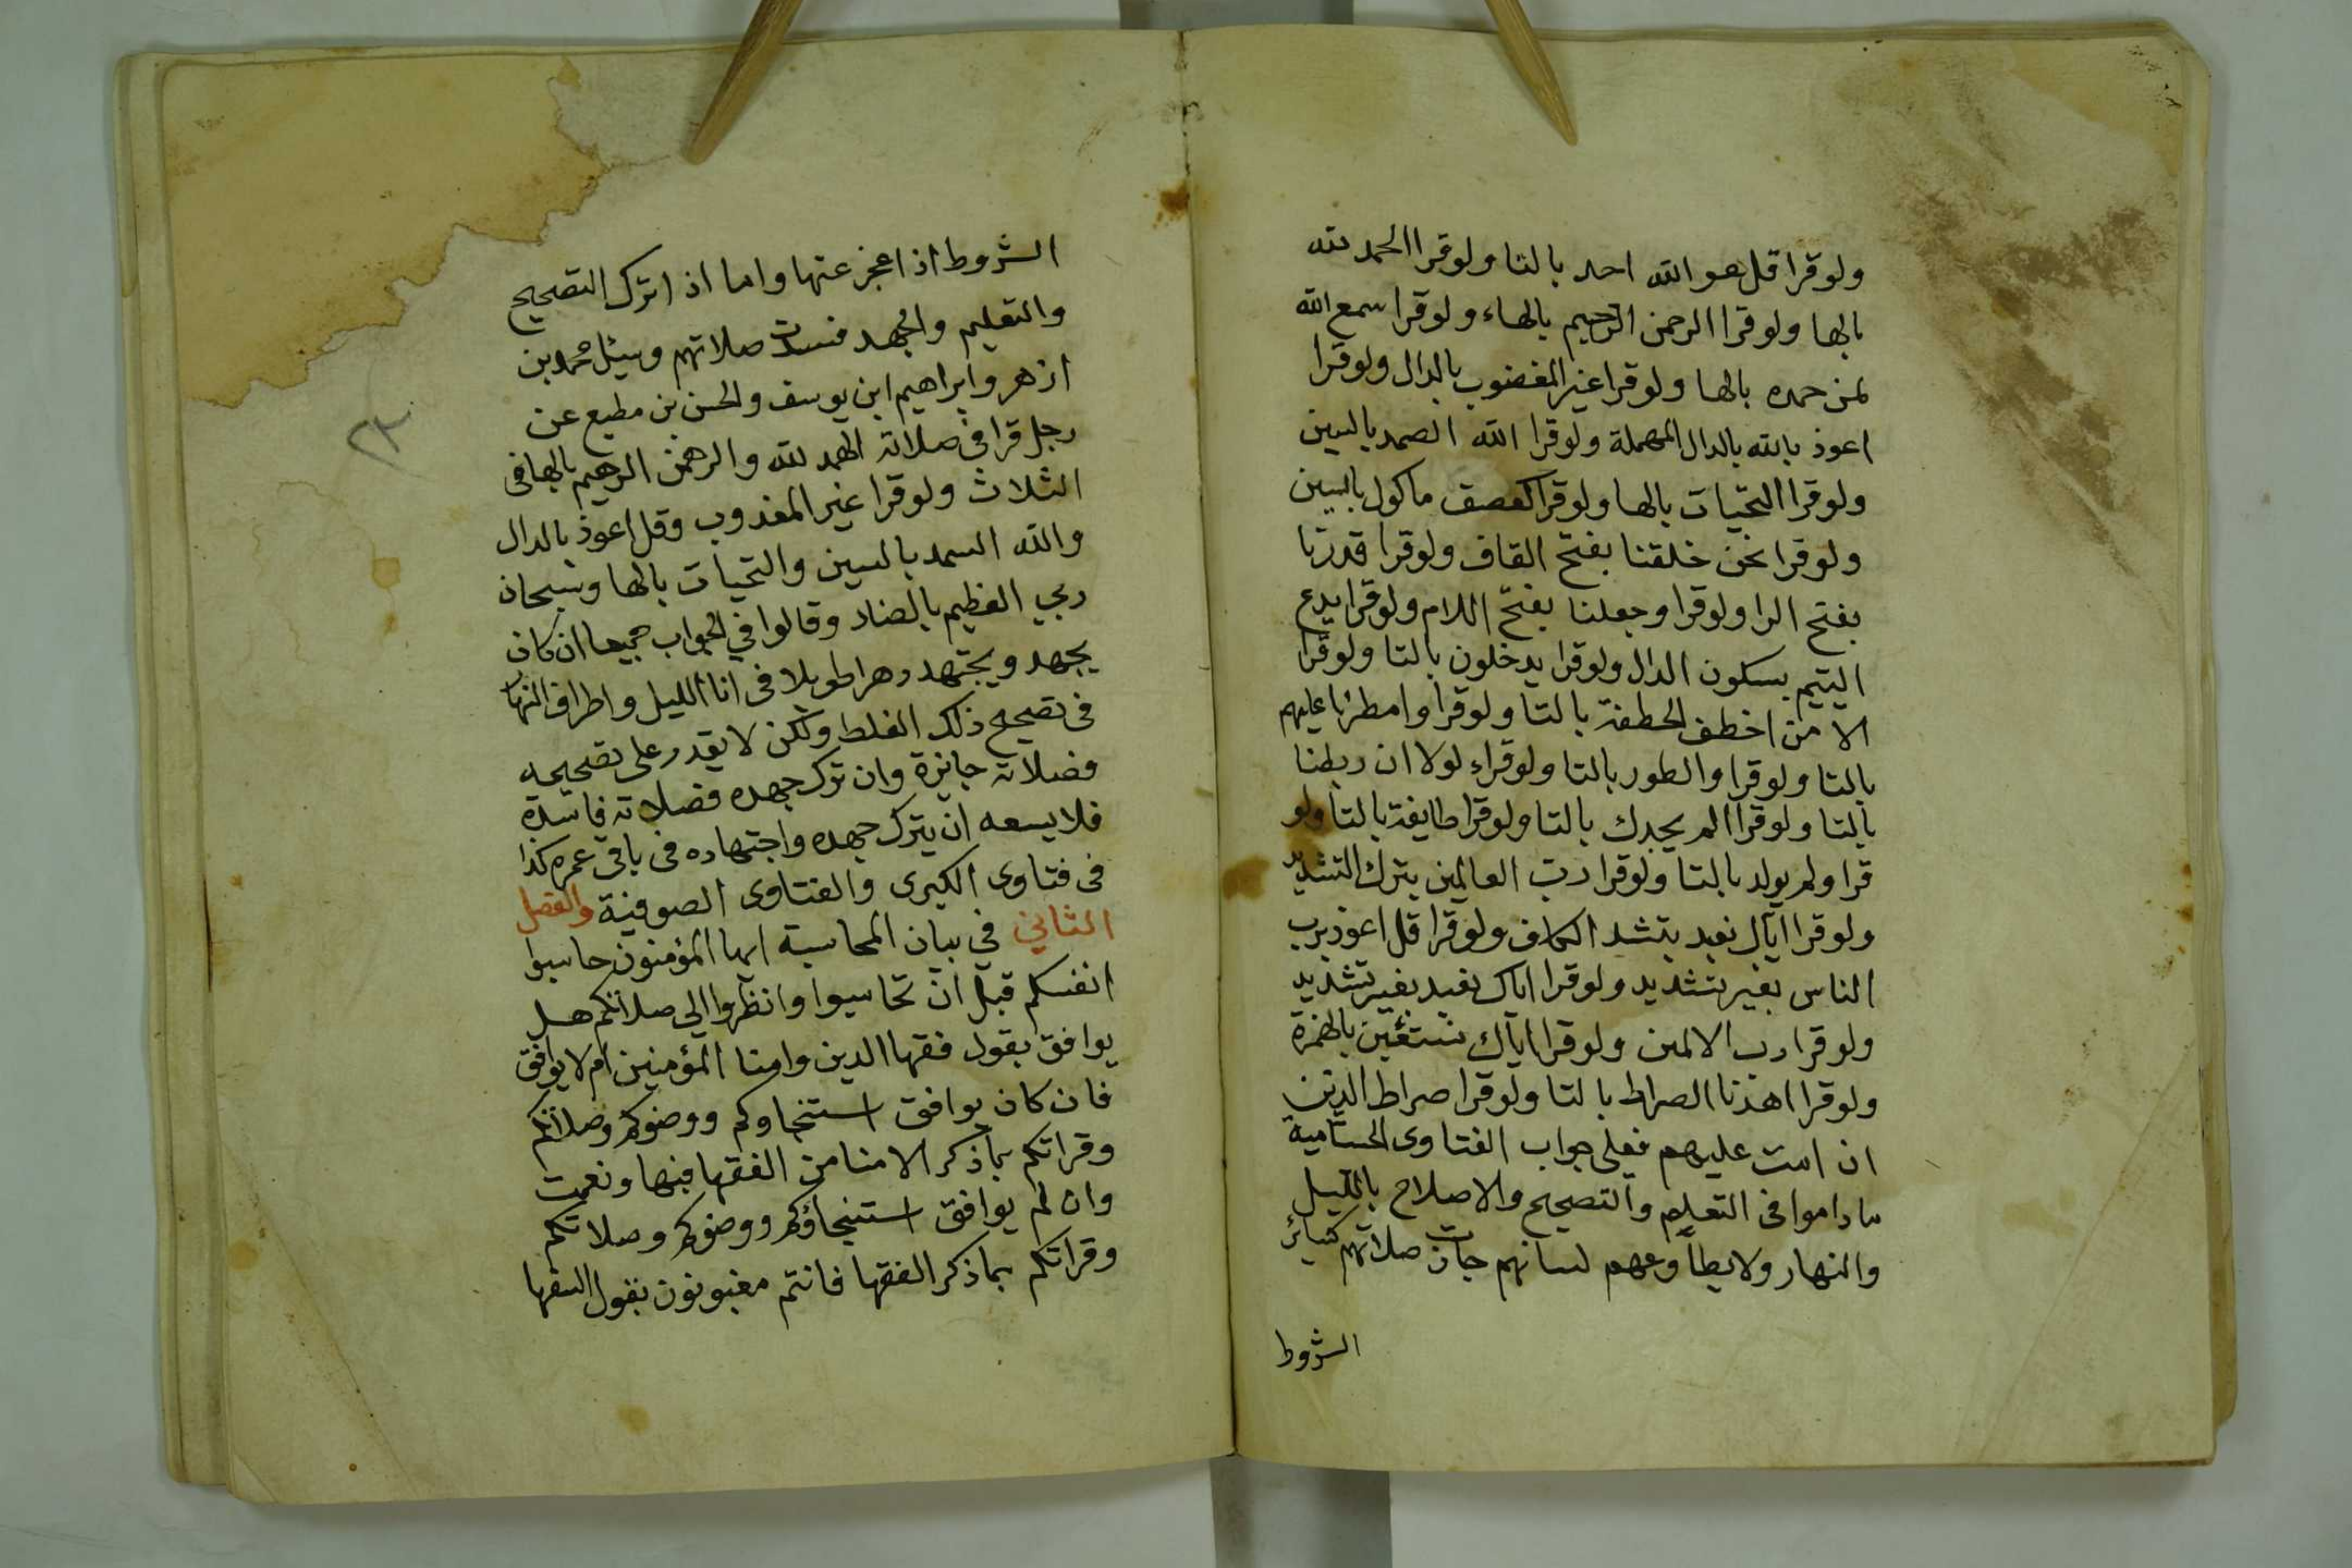 ولو قرا قل هو الله احد بالتا ولو قرا الحمد لله
بالها ولو قرا الرحمن الرحيم بالهاء ولو قرا سمع الله
لمن حمده بالها ولو قرا غير المغضوب بالدال ولو قرا
اعوذ بالله بالدال المهملة ولو قرا الله الصمد بالسين
ولو قرا التحيات بالها ولو قرا كعصف ماكول بالسين
ولو قرا نحن خلقنا بفتح القاف ولو قرا قدرنا
بفتح الرا ولو قرا وجعلنا بفتح اللام ولو قرا يدع
اليتيم بسكون الدال ولو قرا يدخلون بالتا ولو قرا
الا من اخطف الخطفة بالتا ولو قرا وامطرنا عليهم
بالتا ولو قرا والطور بالتا ولو قراء لولا ان ربطنا
بالتا ولو قرا الم يجدك بالتا ولو قرا طايفة بالتا ولو
قرا ولم يولد بالتا ولو قرا رب العالمين بترك التشديد
ولو قرا اياك نعبد بتشد الكاف ولو قرا قل اعوذ برب
الناس بغير تشديد ولو قرا اياك نعبد بغير تشديد
ولو قرا رب الالمين ولو قرا اياك نستئين بالهمزة
ولو قرا اهدنا الصراط بالتا ولو قرا صراط الذين
ان امت عليهم فعلى جواب الفتاوى الحسامية
ما داموا في التعليم والتصحيح والاصلاح بالليل
والنهار ولا يطاوعهم لسانهم جازت صلاتهم كسائر
الشروط
الشروط اذا عجز عنها واما اذا ترك التصحيح
والتعليم والجهد فسدت صلاتهم وسيئل محمد بن
ازهر وابراهيم ابن يوسف والحسن بن مطيع عن
رجل قرا في صلاته الهمد لله والرهمن الرهيم بالها في
الثلاث ولو قرا غير المغدوب وقل اعوذ بالدال
والله السمد بالسين والتحيات بالها وسبحان
ربي العظيم بالضاد وقالوا في الجواب جميعا ان كان
يجهد ويجتهد دهرا طويلا في انا الليل واطراف النهار
في تصحيح ذلك الغلط ولكن لا يقدر على تصحيحه
فصلاته جايزة وان ترك جهده فصلاته فاسدة
فلا يسعه ان يترك جهده واجتهاده في باقي عمره كذا
في فتاوى الكبرى والفتاوى الصوفية والفصل
الثاني في بيان المحاسبة ايها المؤمنون حاسبوا
انفسكم قبل ان تحاسبوا وانظروا الى صلاتكم هل
يوافق بقول فقها الدين وامنا المؤمنين ام لا يوافق
فان كان يوافق استنجاوكم ووضوكم وصلاتكم
وقراتكم بما ذكر الامنا من الفقها فبها ونعمت
وان لم يوافق استنجاؤكم ووضوكم وصلاتكم
وقراتكم بما ذكر الفقها فانتم مغبونون بقول السفها
٢٣